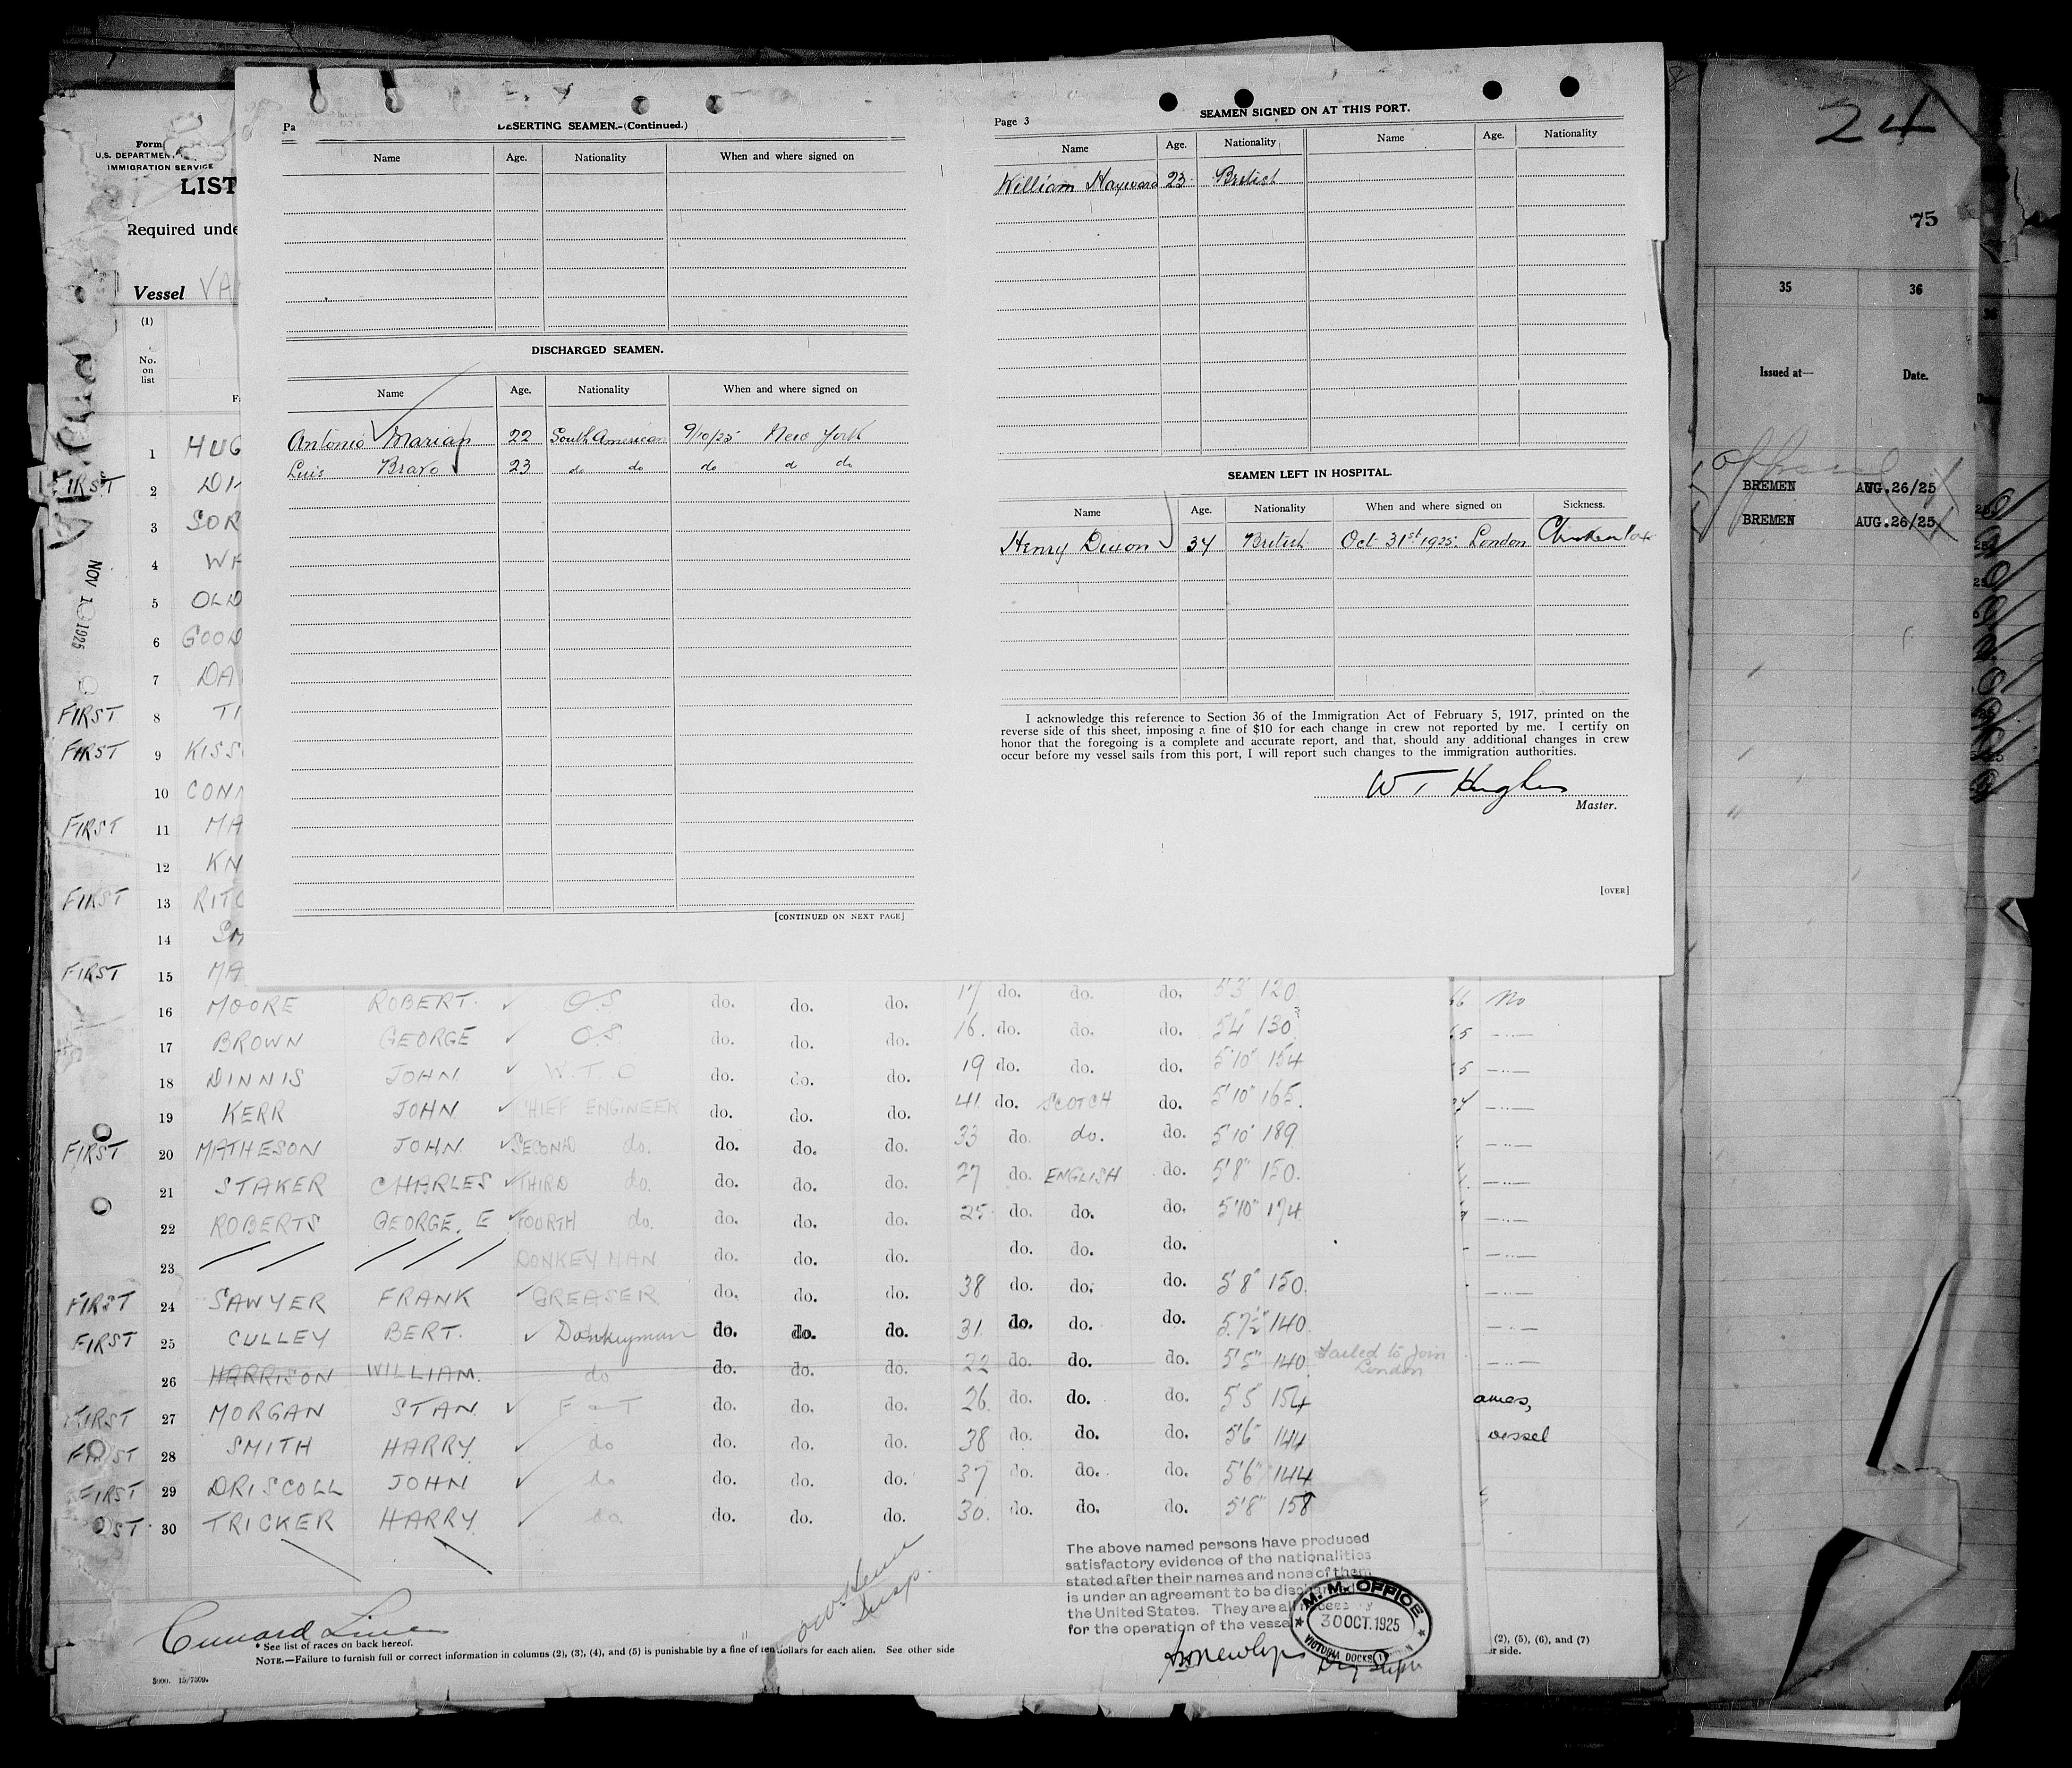 Form
U.S. DEPARTMEN
IMMIGRATION SERVICE
LIST
Required unde
Vessel VA
(1)
No.
on
list
1 HUG
FIRST 2 DI
3 SOR
4 WH
5 OLD
6 GOOD
7 DA
FIRST 8 TI
FIRST 9 KISS
10 CONN
FIRST 11 MA
12 KN
FIRST 13 RITC
14 SM
FIRST 15 MA
NOV 1 1925
Pa
DESERTING SEAMEN.—(Continued.)
Name Age. Nationality When and where signed on
DISCHARGED SEAMEN.
Name Age. Nationality When and where signed on
Antonio Marian 22 South American 9/10/25 New York
Luis Bravo 23 do do do d do
[CONTINUED ON NEXT PAGE]
Page 3
SEAMEN SIGNED ON AT THIS PORT.
Name Age. Nationality Name Age. Nationality
William Hayward 23 British
SEAMEN LEFT IN HOSPITAL.
Name Age. Nationality When and where signed on Sickness.
Henry Dixon 34 British Oct 31st 1925 London Chicken Pox
I acknowledge this reference to Section 36 of the Immigration Act of February 5, 1917, printed on the
reverse side of this sheet, imposing a fine of $10 for each change in crew not reported by me. I certify on
honor that the foregoing is a complete and accurate report, and that, should any additional changes in crew
occur before my vessel sails from this port, I will report such changes to the immigration authorities.
W T Hughes
Master.
[OVER]
24
75
35 36
Issued at— Date.
BREMEN AUG.26/25
BREMEN AUG.26/25
16 MOORE ROBERT. O.S do. do. do. 17 do. do. do. 5'3" 120 No
17 BROWN GEORGE O.S. do. do. do. 16. do. do. do. 5'4" 130
18 DINNIS JOHN. W.T.O do. do. do. 19 do. do. do. 5'10" 154
19 KERR JOHN CHIEF ENGINEER do. do. do. 41. do. SCOTCH do. 5'10" 165.
FIRST 20 MATHESON JOHN. SECOND do. do. do. do. 33 do. do. do. 5'10" 189
21 STAKER CHARLES THIRD do. do. do. do. 27 do. ENGLISH do. 5'8" 150.
22 ROBERTS GEORGE. E FOURTH do. do. do. do. 25 do. do. do. 5'10" 174
23 DONKEYMAN do. do. do. do. do. do.
FIRST 24 SAWYER FRANK GREASER do. do. do. 38 do. do. do. 5'8" 150.
FIRST 25 CULLEY BERT. Donkeyman do. do. do. 31. do. do. do. 5.7½" 140
26 HARRISON WILLIAM. do do. do. do. 22 do. do. do. 5'5" 140 Failed to join
London
FIRST 27 MORGAN STAN. F & T do. do. do. 26. do. do. do. 5'5 154 ames,
FIRST 28 SMITH HARRY. do do. do. do. 38 do. do. do. 5'6" 144 vessel
FIRST 29 DRISCOLL JOHN do do. do. do. 37 do. do. do. 5'6" 144
ST 30 TRICKER HARRY. do. do. do. do. 30. do. do. do. 5'8" 158
The above named persons have produced
satisfactory evidence of the nationalities
stated after their names and none of them
is under an agreement to be discharged
the United States. They are all necessary
for the operation of the vessel
M. M. OFFICE
30 OCT. 1925
VICTORIA DOCKS
Cunard Line
Insp.
* See list of races on back hereof.
NOTE.—Failure to furnish full or correct information in columns (2), (3), (4), and (5) is punishable by a fine of ten dollars for each alien. See other side
(2), (5), (6), and (7)
r side.
5000. 15/7509.